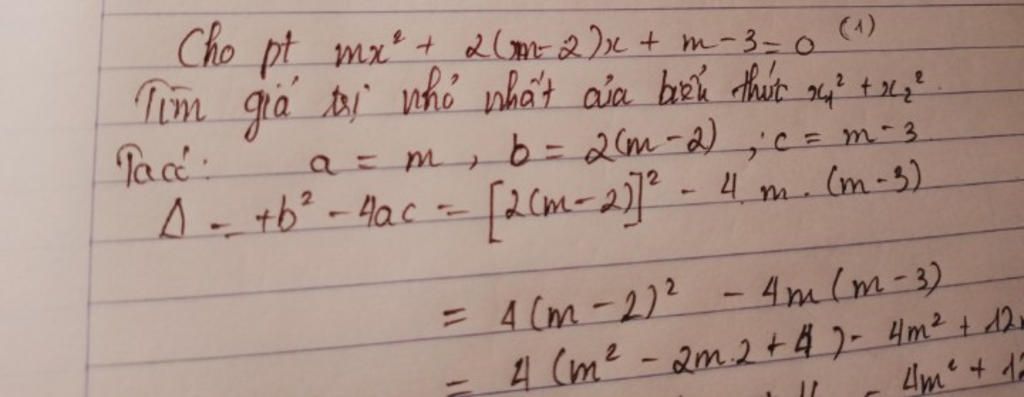 Cho pt mx² + 2(m-2)x + m-3=0 (1)
Tìm giá trị nhỏ nhất của biểu thức x₁² + x₂².
Ta có: a = m, b = 2(m-2), c = m-3
Δ = +b² - 4ac = [2(m-2)]² - 4.m.(m-3)
= 4(m-2)² - 4m(m-3)
= 4(m² - 2m.2 + 4) - 4m² + 12
- 4m² + 12